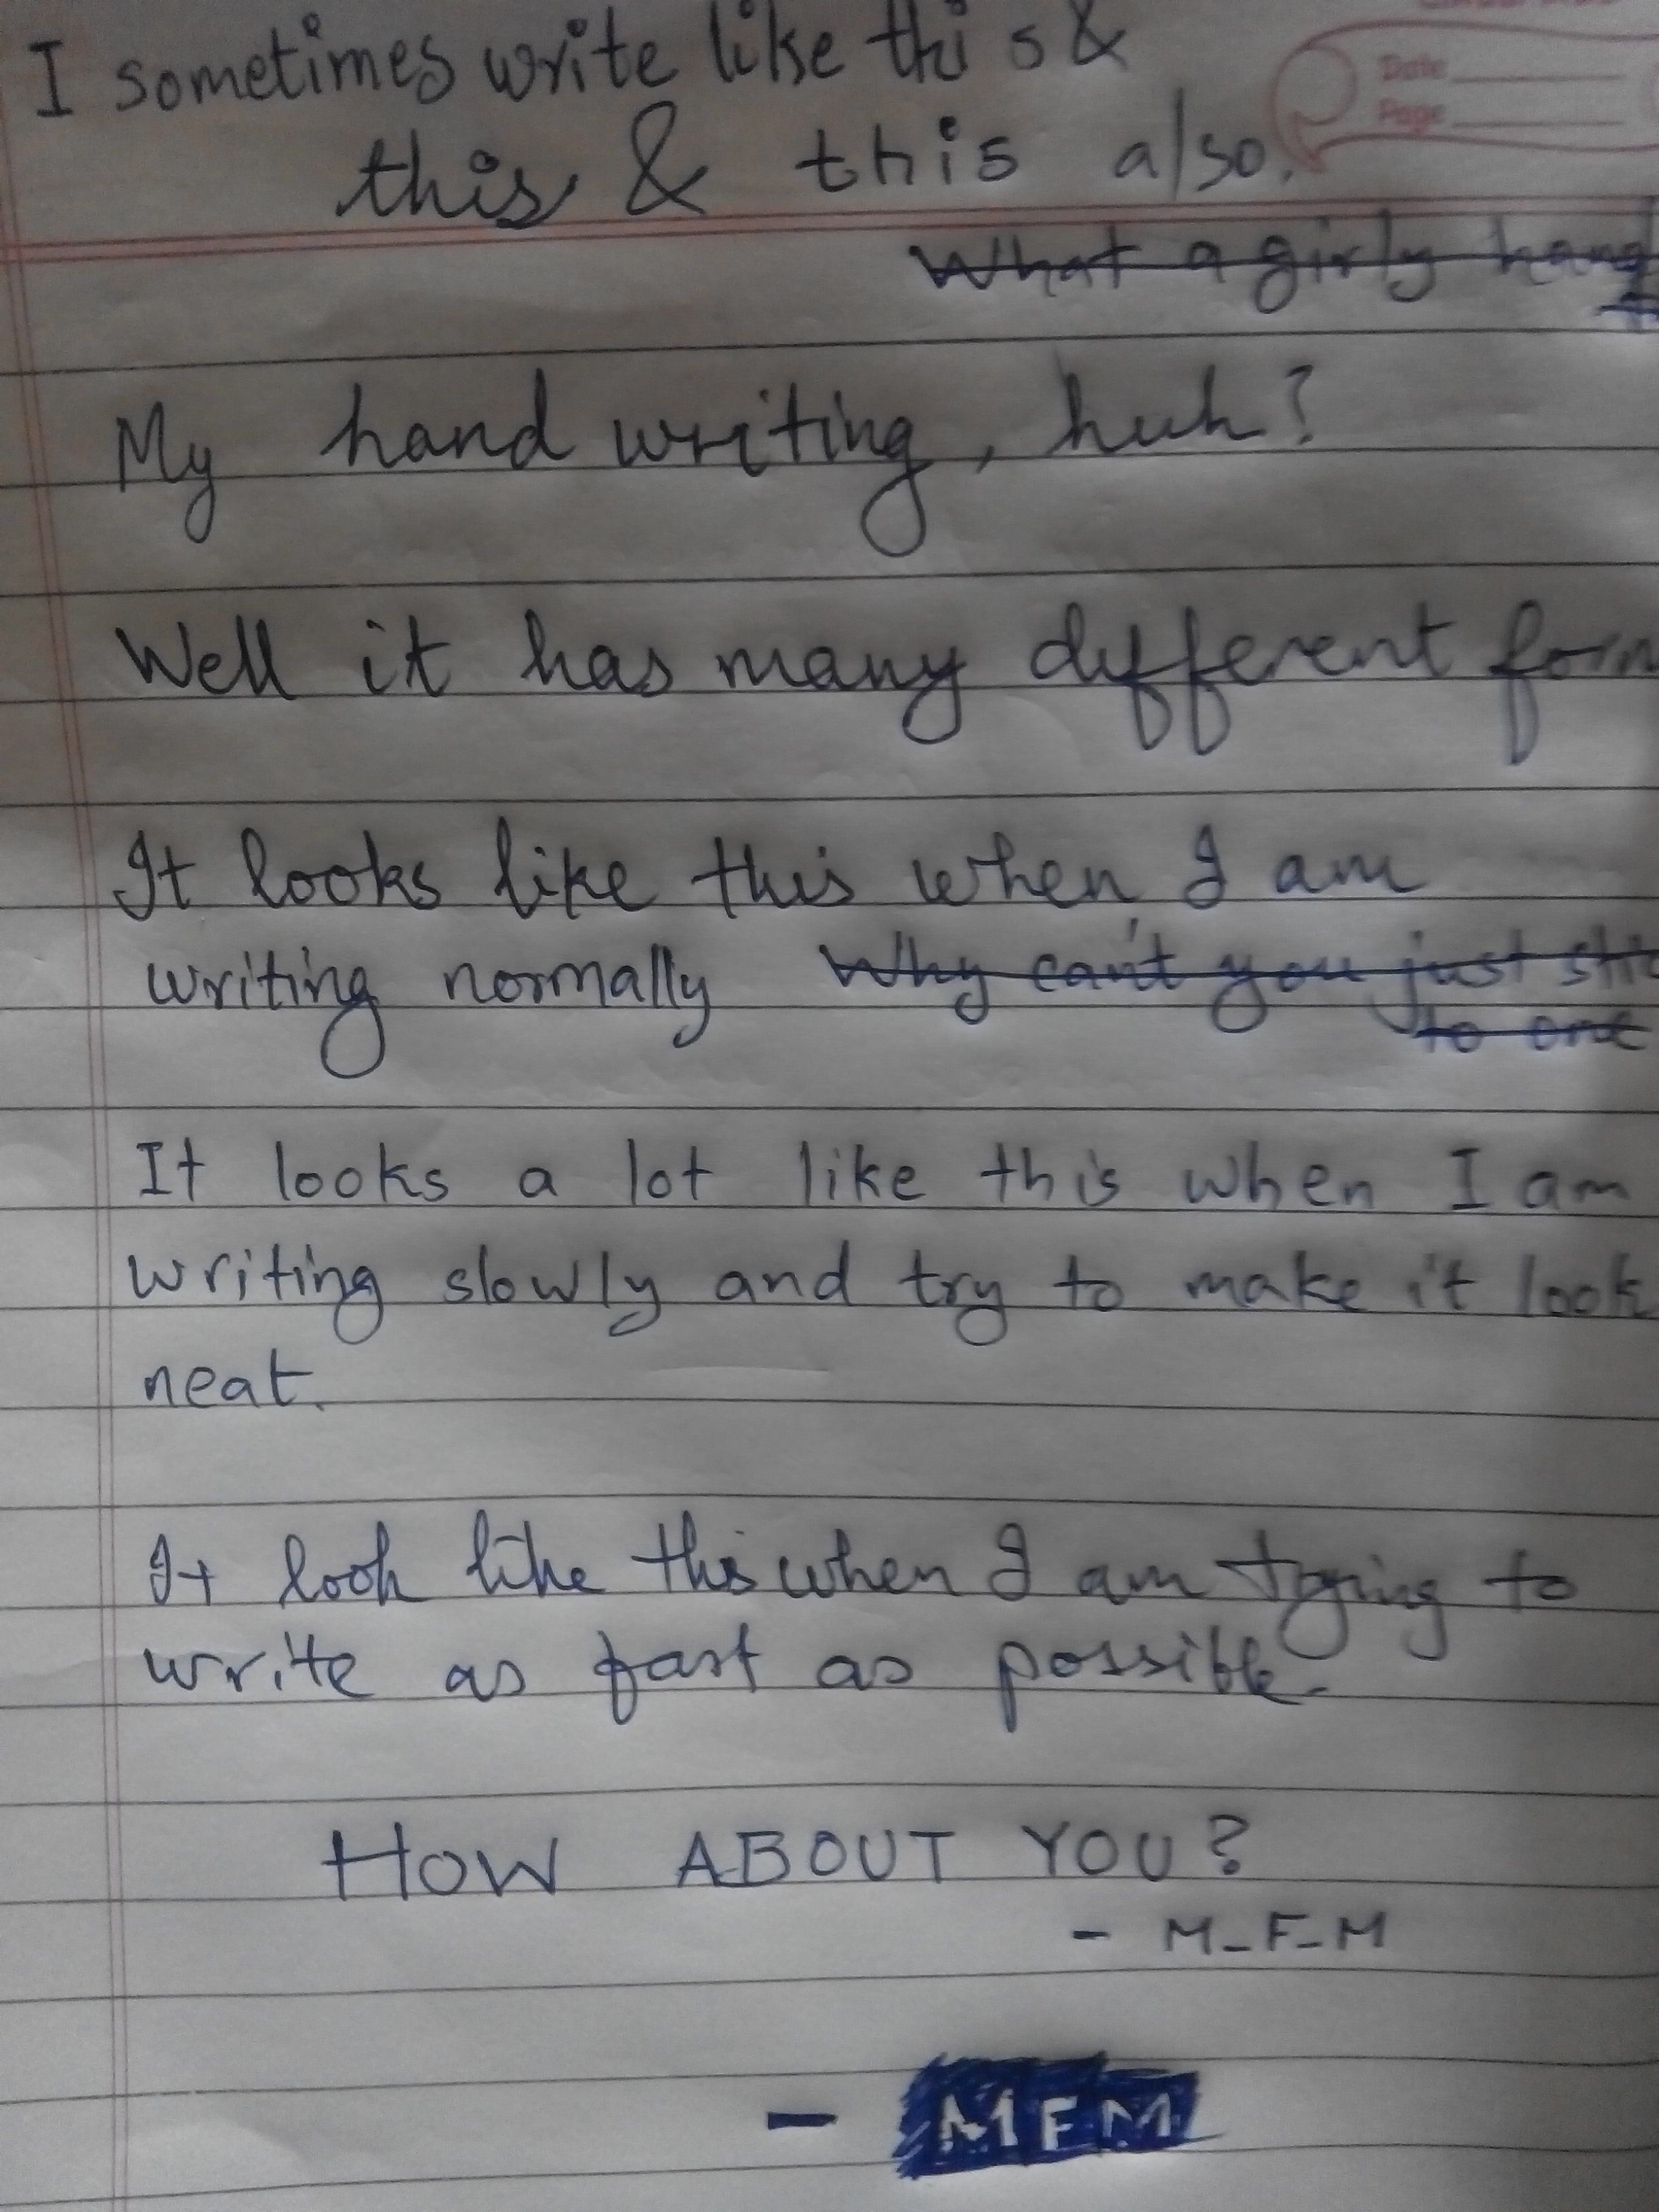 I sometimes write like this &
Date
Page
this & this also.
What a girly hand
My hand writing, huh?
Well it has many different form
It looks like this when I am
writing normally Why can't you just
to one
It looks a lot like this when I am
writing slowly and try to make it look
neat.
It look like this when I am trying to
write as fast as possible.
HOW ABOUT YOU?
- M_F_M
- MFM